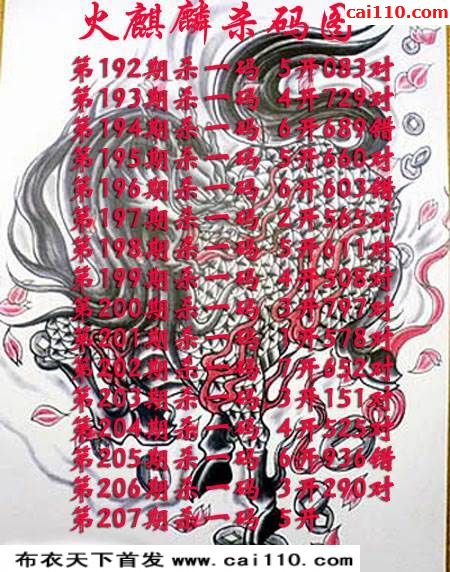 cai110.com
火麒麟杀码图
第192期杀一码 5开083对
第193期杀一码 4开729对
第194期杀一码 6开689错
第195期杀一码 5开660对
第196期杀一码 6开603错
第197期杀一码 2开565对
第198期杀一码 5开671对
第199期杀一码 4开508对
第200期杀一码 3开797对
第201期杀一码 1开578对
第202期杀一码 7开652对
第203期杀一码 3开151对
第204期杀一码 4开525对
第205期杀一码 6开936错
第206期杀一码 3开290对
第207期杀一码 5开
布衣天下首发 www.cai110.com